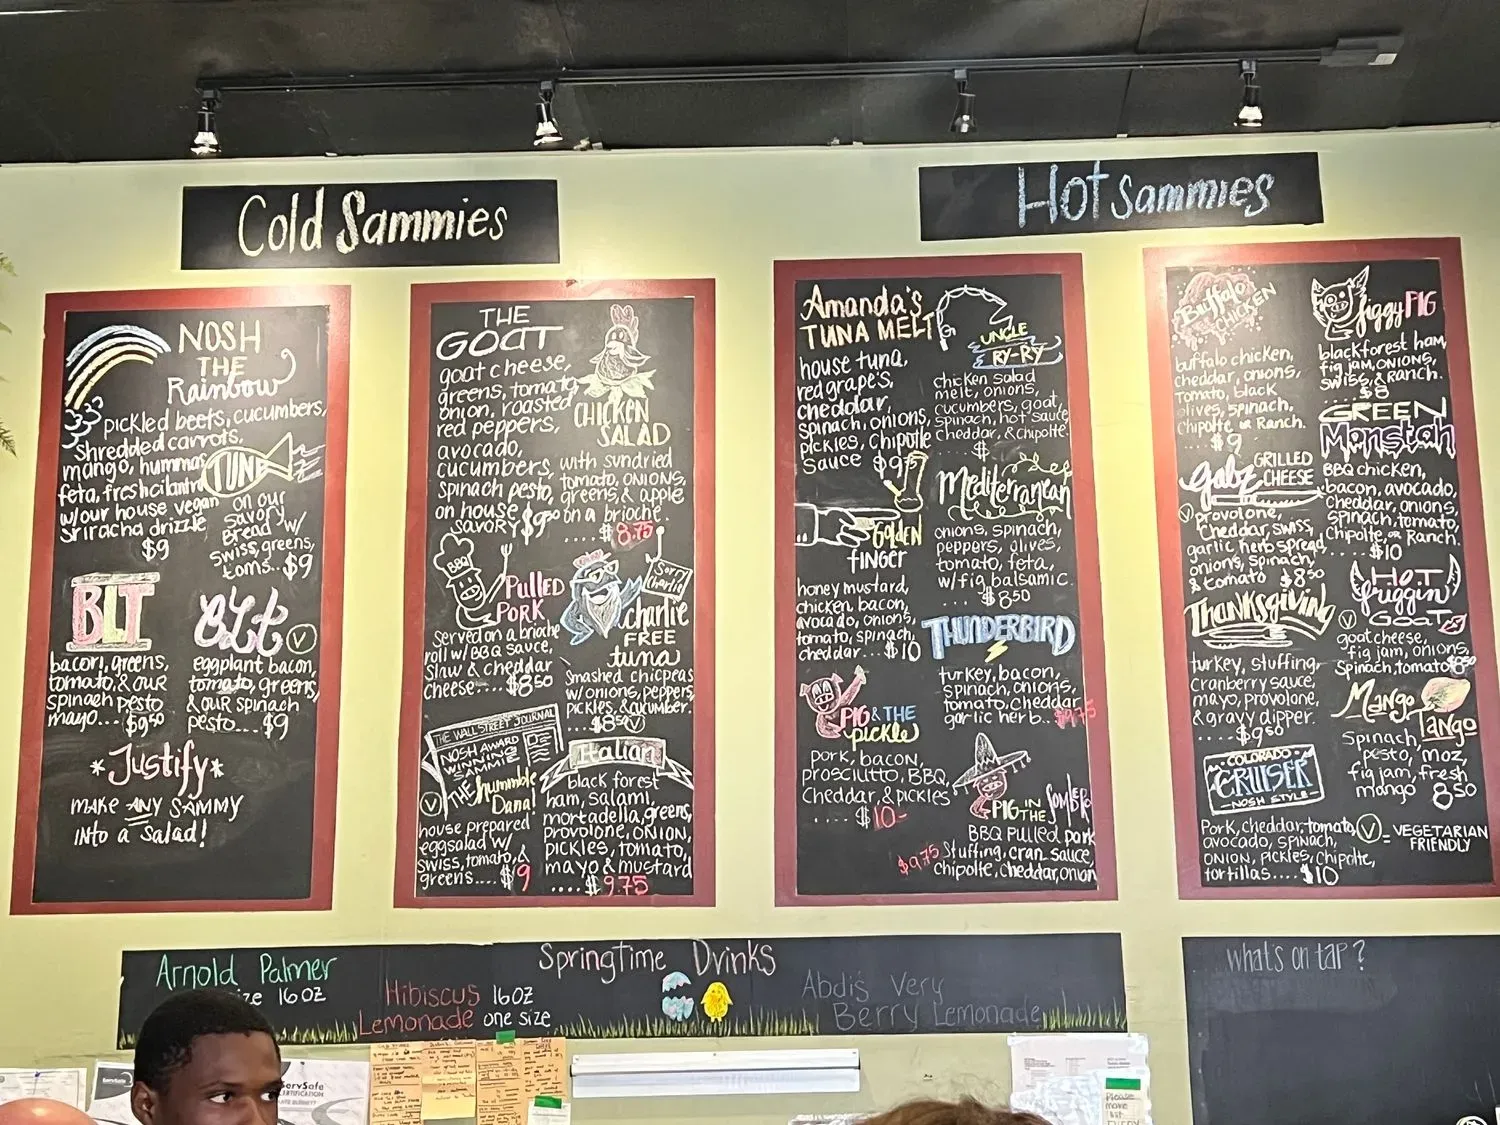 Cold Sammies
NOSH
THE
Rainbow
pickled beets, cucumbers,
shredded carrots,
mango, hummas
feta, fresh cilantro
w/our house vegan
sriracha drizzle
$9
TUNA
on our
savory
Bread w/
swiss, greens,
toms.. $9
BLT
bacon, greens,
tomato, & our
spinach pesto
mayo... $9.50
ELT V
eggplant bacon,
tomato, greens,
& our spinach
pesto.... $9
*Justify*
MAKE ANY SAMMY
INTO a Salad!
THE
GOAT
goat cheese,
greens, tomato,
onion, roasted
red peppers,
avocado,
cucumbers,
spinach pesto,
on house
savory $9.50
CHICKEN
SALAD
with sundried
tomato, onions,
greens, & apple
on a brioche.
.... $8.75
BBQ
PULLED
PORK
Served on a brioche
roll w/ BBQ sauce,
slaw & cheddar
cheese.... $8.50
Sorry
Charlie
charlie
FREE
tuna
Smashed chicpeas
w/onions, peppers,
pickles, & cucumber.
..$8.50 V
THE WALL STREET JOURNAL
NOSH AWARD
WINNING
SAMMIE
THE hummble
Dana!
V
house prepared
eggsalad w/
swiss, tomato, &
greens.... $9
Italian
black forest
ham, salami,
mortadella, greens,
provolone, onion,
pickles, tomato,
mayo & mustard
.... $9.75
Hot Sammies
Amanda's
TUNA MELT
house tuna,
red grape's,
cheddar,
spinach, onions,
pickles, chipotle
sauce $9.75
UNCLE
RY-RY
chicken salad
melt, onions,
cucumbers, goat,
spinach, hot sauce,
cheddar, & chipotle.
$
Golden
finger
honey mustard,
chicken, bacon,
avocado, onions,
tomato, spinach,
cheddar... $10
Mediterranean
onions, spinach,
peppers, olives,
tomato, feta,
w/ fig balsamic.
.... $8.50
THUNDERBIRD
turkey, bacon,
spinach, onions,
tomato, cheddar
garlic herb.. $9.75
PIG & THE
pickle
pork, bacon,
prosciutto, BBQ,
Cheddar, & pickles
.... $10-
PIG IN THE Sombrero
BBQ pulled pork
$9.75 Stuffing, cran sauce,
chipotle, cheddar, onion
Buffalo
CHICKEN
buffalo chicken,
cheddar, onions,
tomato, black
olives, spinach,
Chipotle or Ranch.
$9
jiggy PIG
blackforest ham,
fig jam, onions,
swiss, & Ranch.
... $8
GREEN
Monstah
BBQ chicken,
bacon, avocado,
cheddar, onions,
spinach, tomato,
Chipotle, or Ranch.
.... $10
Gabz GRILLED
CHEESE
V provolone,
cheddar, swiss,
garlic herb spread,
onions, spinach,
& tomato $8.50
HOT
friggin'
GOAT
V
goat cheese,
fig jam, onions,
Spinach, tomato $8.50
THANKSGIVING
turkey, stuffing,
cranberry sauce,
mayo, provolone,
& gravy dipper.
... $9.50
Mango
Tango
Spinach,
pesto, moz,
fig jam, fresh
mango 8.50
COLORADO
CRUISER
NOSH STYLE
Pork, cheddar, tomato,
avocado, spinach,
onion, pickles, chipolte,
tortillas.... $10
V = VEGETARIAN
FRIENDLY
Springtime Drinks
Arnold Palmer
size 16 oz
Hibiscus 16 OZ
Lemonade one size
Abdi's Very
Berry Lemonade
what's on tap?
ServSafe
CERTIFICATION